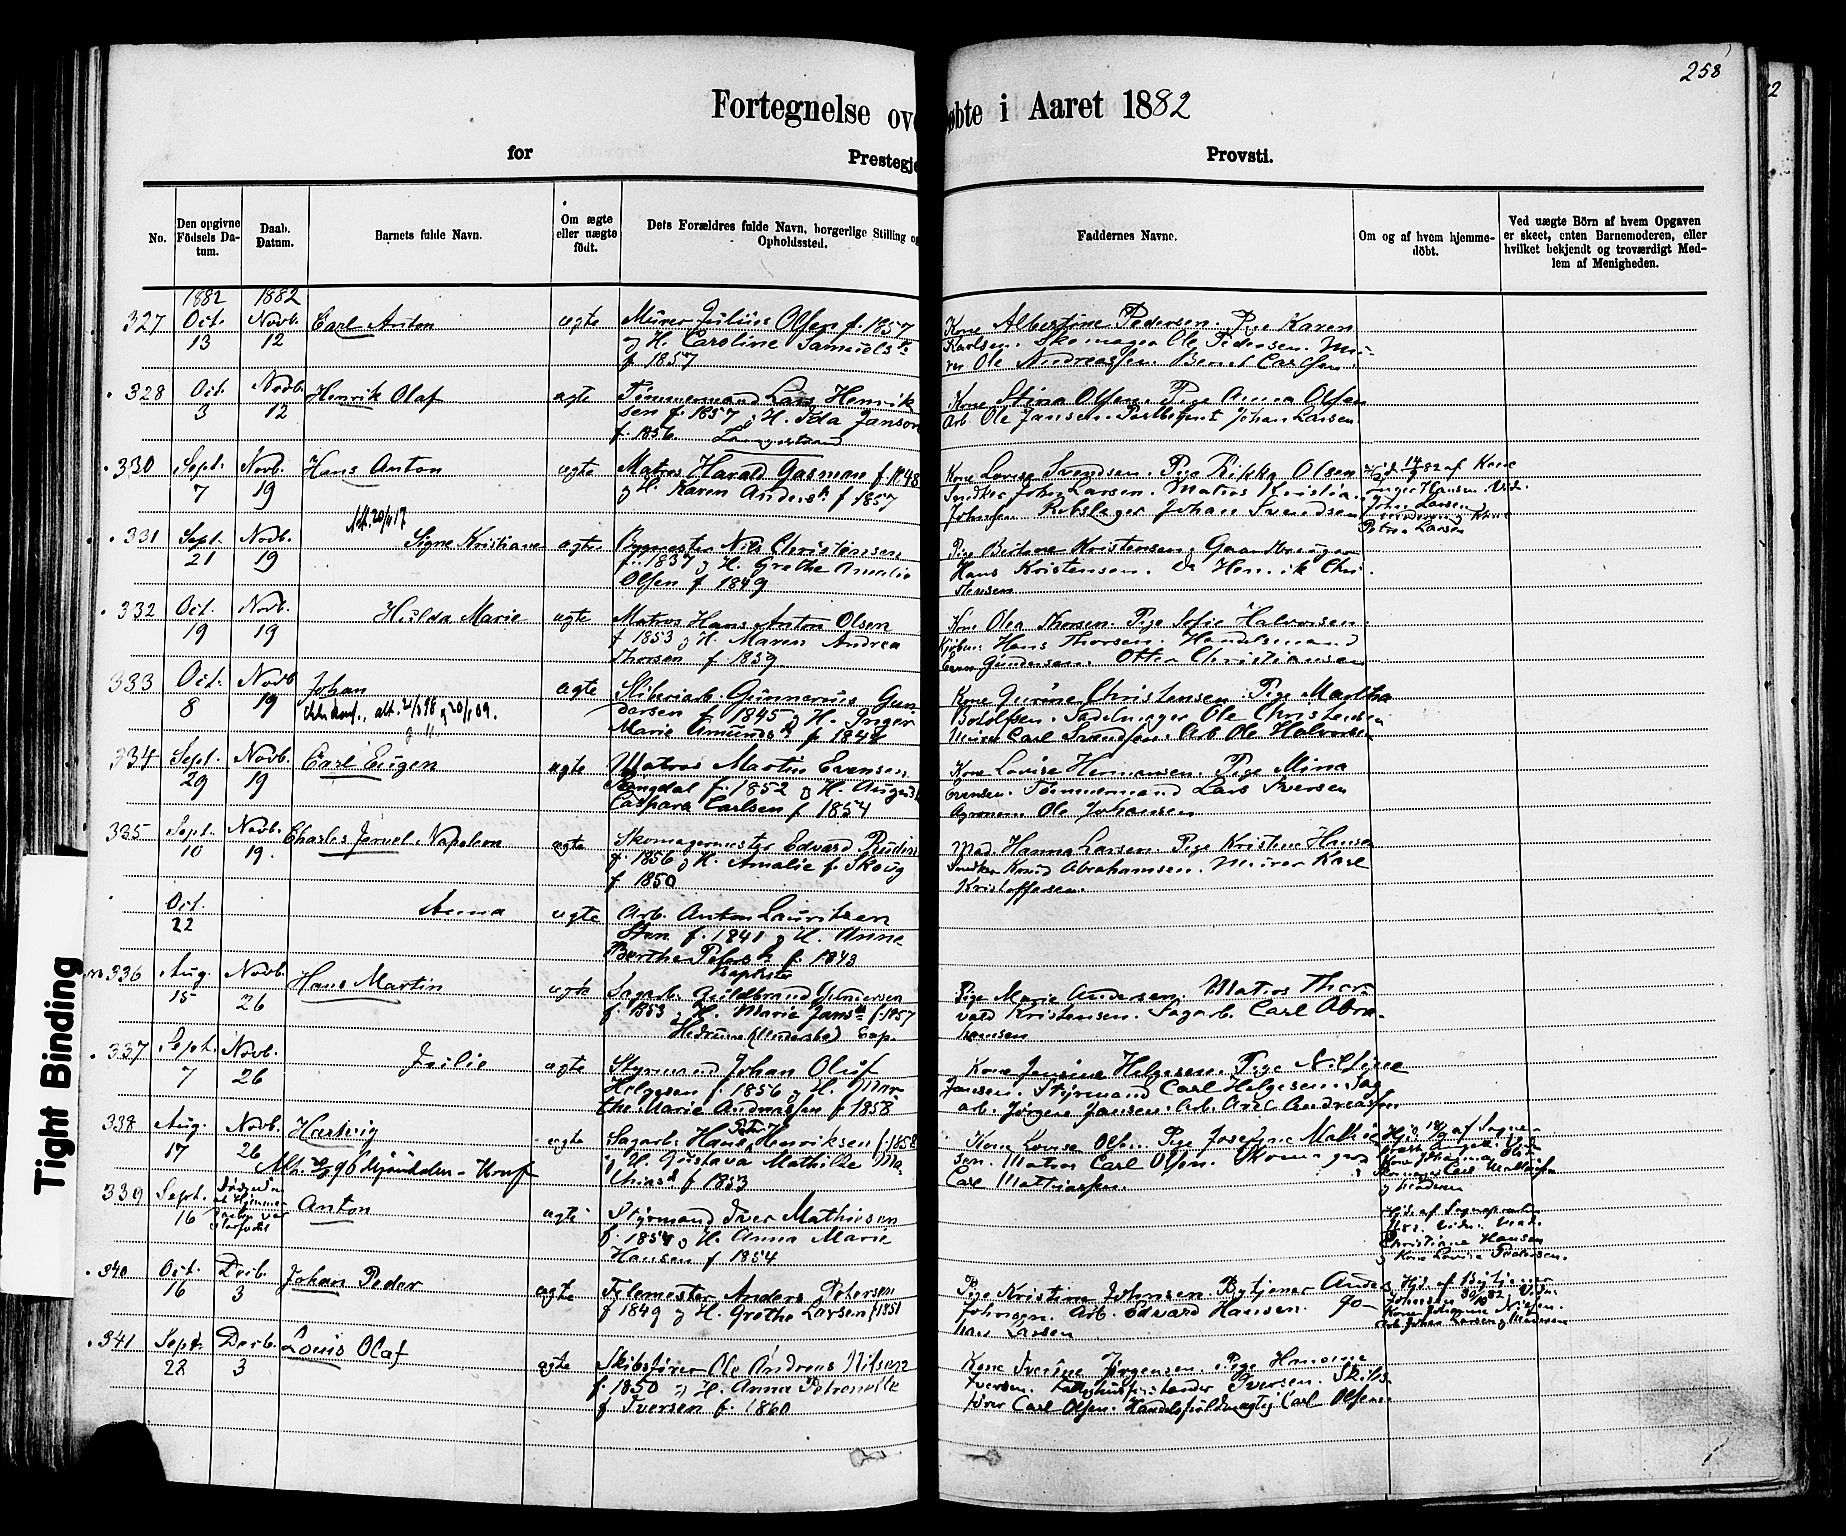 258
Fortegnelse ove øbte i Aaret 1882
for Prestegje Provsti.
No.
Den opgivne Födsels Da-tum.
Daab. Datum.
Barnets fulde Navn.
Om ægte eller uægte födt.
Dets Forældres fulde Navn, borgerlige Stilling og Opholdssted.
Faddernes Navne.
Om og af hvem hjemme-döbt.
Ved uægte Börn af hvem Opgaven er skeet, enten Barnemoderen, eller hvilket bekjendt og troværdigt Med-lem af Menigheden.
1882 1882
327 Oct. 13 Novb. 12 Carl Anton ægte
Murer Julius Olsen f. 1857
og H. Caroline Samuels
f 1857
Kone Albertine Pedersen. Pige Karen
Karlsen. Skomager Ole Pedersen. Mu-
rer Ole Andreassen. Bernt Carlsen.
328 Oct. 3 Novb. 12 Henrik Olaf ægte
Tømmermand Lars Henrik
sen f. 1857 og H. Ida Janson
f. 1856. Langestrand
Kone Stina Olsen. Pige Anna Olsen
Arb. Ole Jansen. Postbetjent Johan Larsen
330 Sept. 7 Novb. 19 Hans Anton ægte
Matros Harald Gasman f. 1848
og H. Karen Anders f 1857
Kone Lovise Svendsen. Pige Rikka Olsen
Snedker John Larsen. Matros Kristia
Johnsen Rebslager Johan Svendsen
John Larsen
Petra Larsen
331 Sept. 21 Novb. 19 Signe Kristiane ægte
Bygmester Nils Christensen
f. 1837 og H. Grethe Amalie
Olsen f 1849
Hans Kristensen. Henrik Chri-
stensen
332 Oct. 19 Novb. 19 Hulda Marie ægte
Matros Hans Anton Olsen
f 1853 og H. Maren Andrea
Thorsen f. 1859
Kone Olea Thorsen. Pige Sofie Halvorsen.
Kjøbm. Hans Thorsen. Handelsmand
Even Gundersen. Otter Christiansen
333 Oct. 8 Novb 19 Johan ægte
Sliberiarb. Gunnerius Gun
dersen f 1845 og H. Inger
Marie Amunds f. 1848
Kone Gurine Christensen. Pige Martha
Botolfsen. Sadelmager Ole Christensen
Murer Carl Svendsen. Arb Ole Halvorsen
334 Sept. 29 Novb. 19 Carl Eugen ægte
Matros Martin Evensen
Rangdal f. 1852 og H. August
Caspara Carlsen f 1854
Kone Lovise Hermansen. Pige Mina
Evensen. Tømmermand Lars Iversen
Agronom Ole Johansen
335 Sept. 10 Novb. 19. Charles Napoleon ægte
Skomagermester Edvard Rudin
f. 1856 og H. Amalie f. Skoug
f 1850
Mad. Hanna Larsen. Pige Kristine Hansen
Snedker Knud Abrahamsen. Murer Karl
Kristoffersen.
Oct. 22 Anna ægte
Arb. Anton Lauritzen
Sten f. 1841 og H. Anne
Berthe Peters f. 1843
Baptister
336 Aug. 15 Novb. 26 Hans Martin ægte
Sagarb. Hildbrand Gundersen
f. 1853 og H. Marie Jans f. 1857
Hedrum
Pige Marie Andersen Matros Thor
vald Kristensen. Sagarb. Carl Abra-
hamsen
337 Sept. 7 Novb. 26 Julie ægte
Styrmand Johan Oluf
Helgesen f. 1856 og H. Mar
the Marie Andreassen f 1858
Kone Jensine Helgesen. Pige Niltine
Jansen. Styrmand Carl Helgesen. Sag
arb. Jørgen Jansen. Arb. Axel Andreassen
338 Aug. 17 Novb. 26 Hartvig ægte
Sagarb. Hans Peter Henriksen f. 1858
og H. Gustava Mathilde Ma
thias f 1853
Kone Lovise Olsen. Pige Josefine Mathia
sen. Matros Carl Olsen. Skomager
Carl Mathiassen.
339 Sept. 16 Anton ægte
Styrmand Iver Mathisen
f. 1854 og H. Anna Marie
Hansen f 1854
Christiane Hansen
og Kone Lovise Pedersen.
340 Oct. 16 Decb. 3 Johan Peder ægte
Filemester Anders Petersen
f 1849 og H. Grethe Larsen f 1851
Pige Kristine Johnsen Bytjener Anders
Johnsen. Arb. Edvard Hansen. Jo-
han Larsen
341 Sept. 28 Decb. 3 Louis Olaf ægte
Skibsfører Ole Andreas Nilsen
f. 1850 og H. Anna Petronelle
f Iversen f. 1860
Kone Iverine Jørgensen. Pige
Iversen. Fattighusforstander Iversen. Skibs
fører Carl Olsen. Handelsfuldmægtig Carl Olsen.
Tight Binding